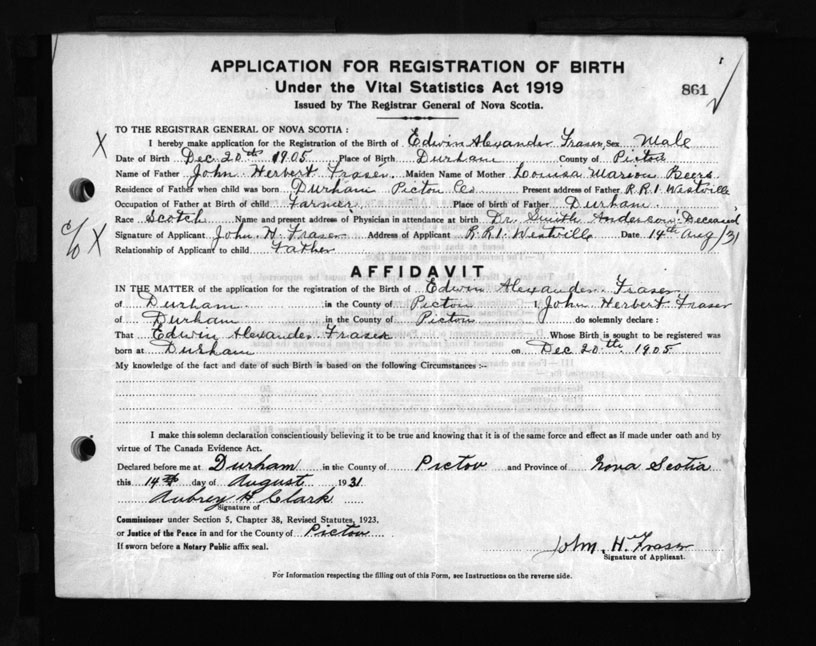 APPLICATION FOR REGISTRATION OF BIRTH
Under the Vital Statistics Act 1919
861
Issued by The Registrar General of Nova Scotia.
TO THE REGISTRAR GENERAL OF NOVA SCOTIA :
X
I hereby make application for the Registration of the Birth of Edwin Alexander Fraser Sex Male
Date of Birth Dec 20th 1905 Place of Birth Durham County of Pictou
Name of Father John Herbert Fraser Maiden Name of Mother Louisa Marion Beers
Residence of Father when child was born Durham Pictou Co Present address of Father R.R.1. Westville
Occupation of Father at Birth of child Farmer Place of birth of Father Durham
Race Scotch Name and present address of Physician in attendance at birth Dr. Smith Anderson, Deceased
c/o X
Signature of Applicant John H. Fraser Address of Applicant R.R.1. Westville Date 14th Aug/31
Relationship of Applicant to child Father
AFFIDAVIT
IN THE MATTER of the application for the registration of the Birth of Edwin Alexander Fraser
of Durham in the County of Pictou I, John Herbert Fraser
of Durham in the County of Pictou do solemnly declare :
That Edwin Alexander Fraser Whose Birth is sought to be registered was
born at Durham on Dec 20th 1905
My knowledge of the fact and date of such Birth is based on the following Circumstances :--
I make this solemn declaration conscientiously believing it to be true and knowing that it is of the same force and effect as if made under oath and by
virtue of The Canada Evidence Act.
Declared before me at Durham in the County of Pictou and Province of Nova Scotia
this 14th day of August 1931
Aubrey H Clark
Signature of
Commissioner under Section 5, Chapter 38, Revised Statutes, 1923.
or Justice of the Peace in and for the County of Pictou
If sworn before a Notary Public affix seal.
John. H. Fraser
Signature of Applicant.
For Information respecting the filling out of this Form, see Instructions on the reverse side.